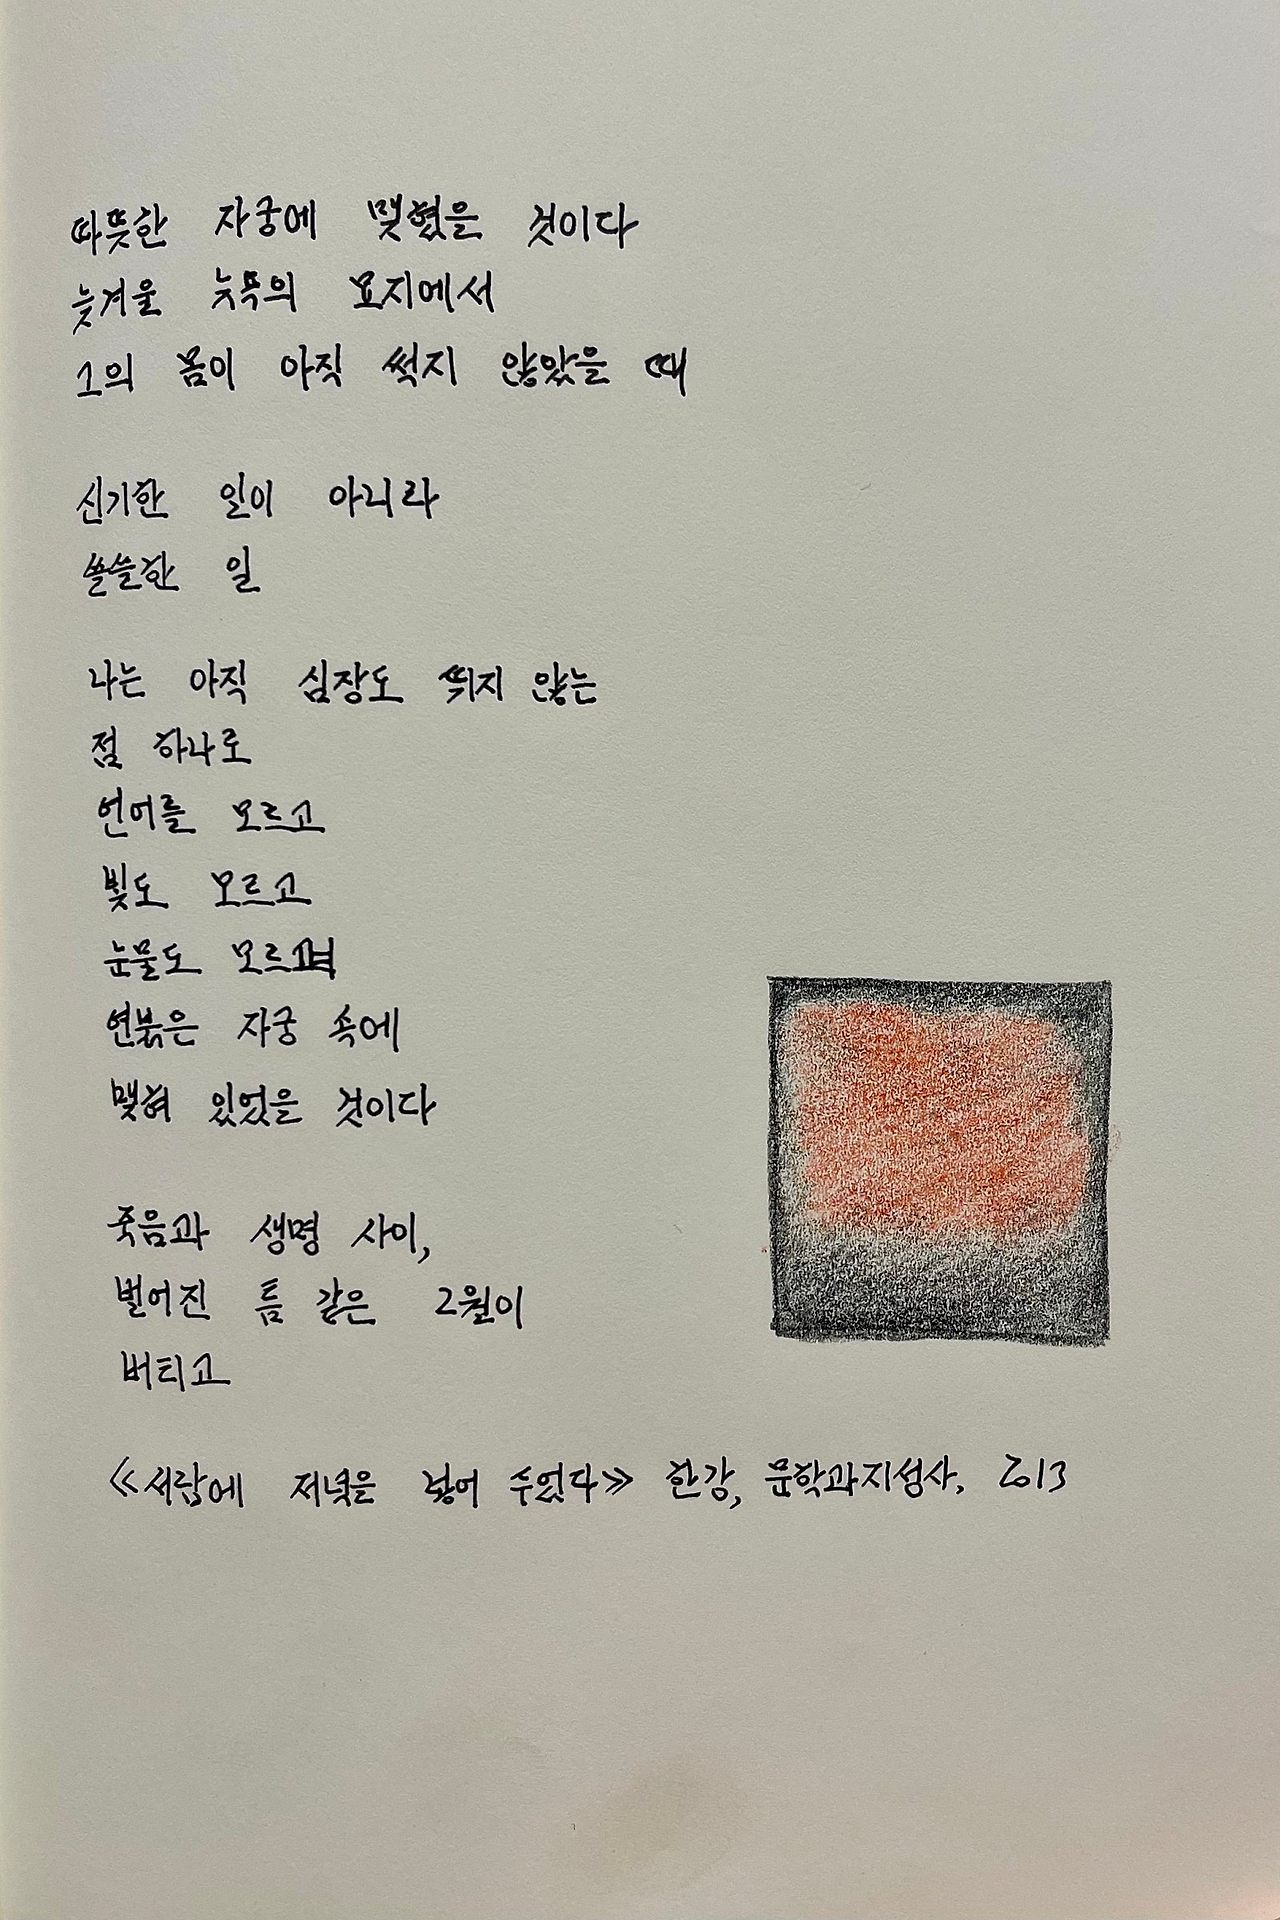 따뜻한 자궁에 맺혔을 것이다
늦겨울 뉴욕의 묘지에서
그의 몸이 아직 썩지 않았을 때
신기한 일이 아니라
쓸쓸한 일
나는 아직 심장도 뛰지 않는
점 하나로
언어를 모르고
빛도 모르고
눈물도 모르며
연붉은 자궁 속에
맺혀 있었을 것이다
죽음과 생명 사이,
벌어진 틈 같은 2월이
버티고
《서랍에 저녁을 넣어 두었다》 한강, 문학과지성사, 2013